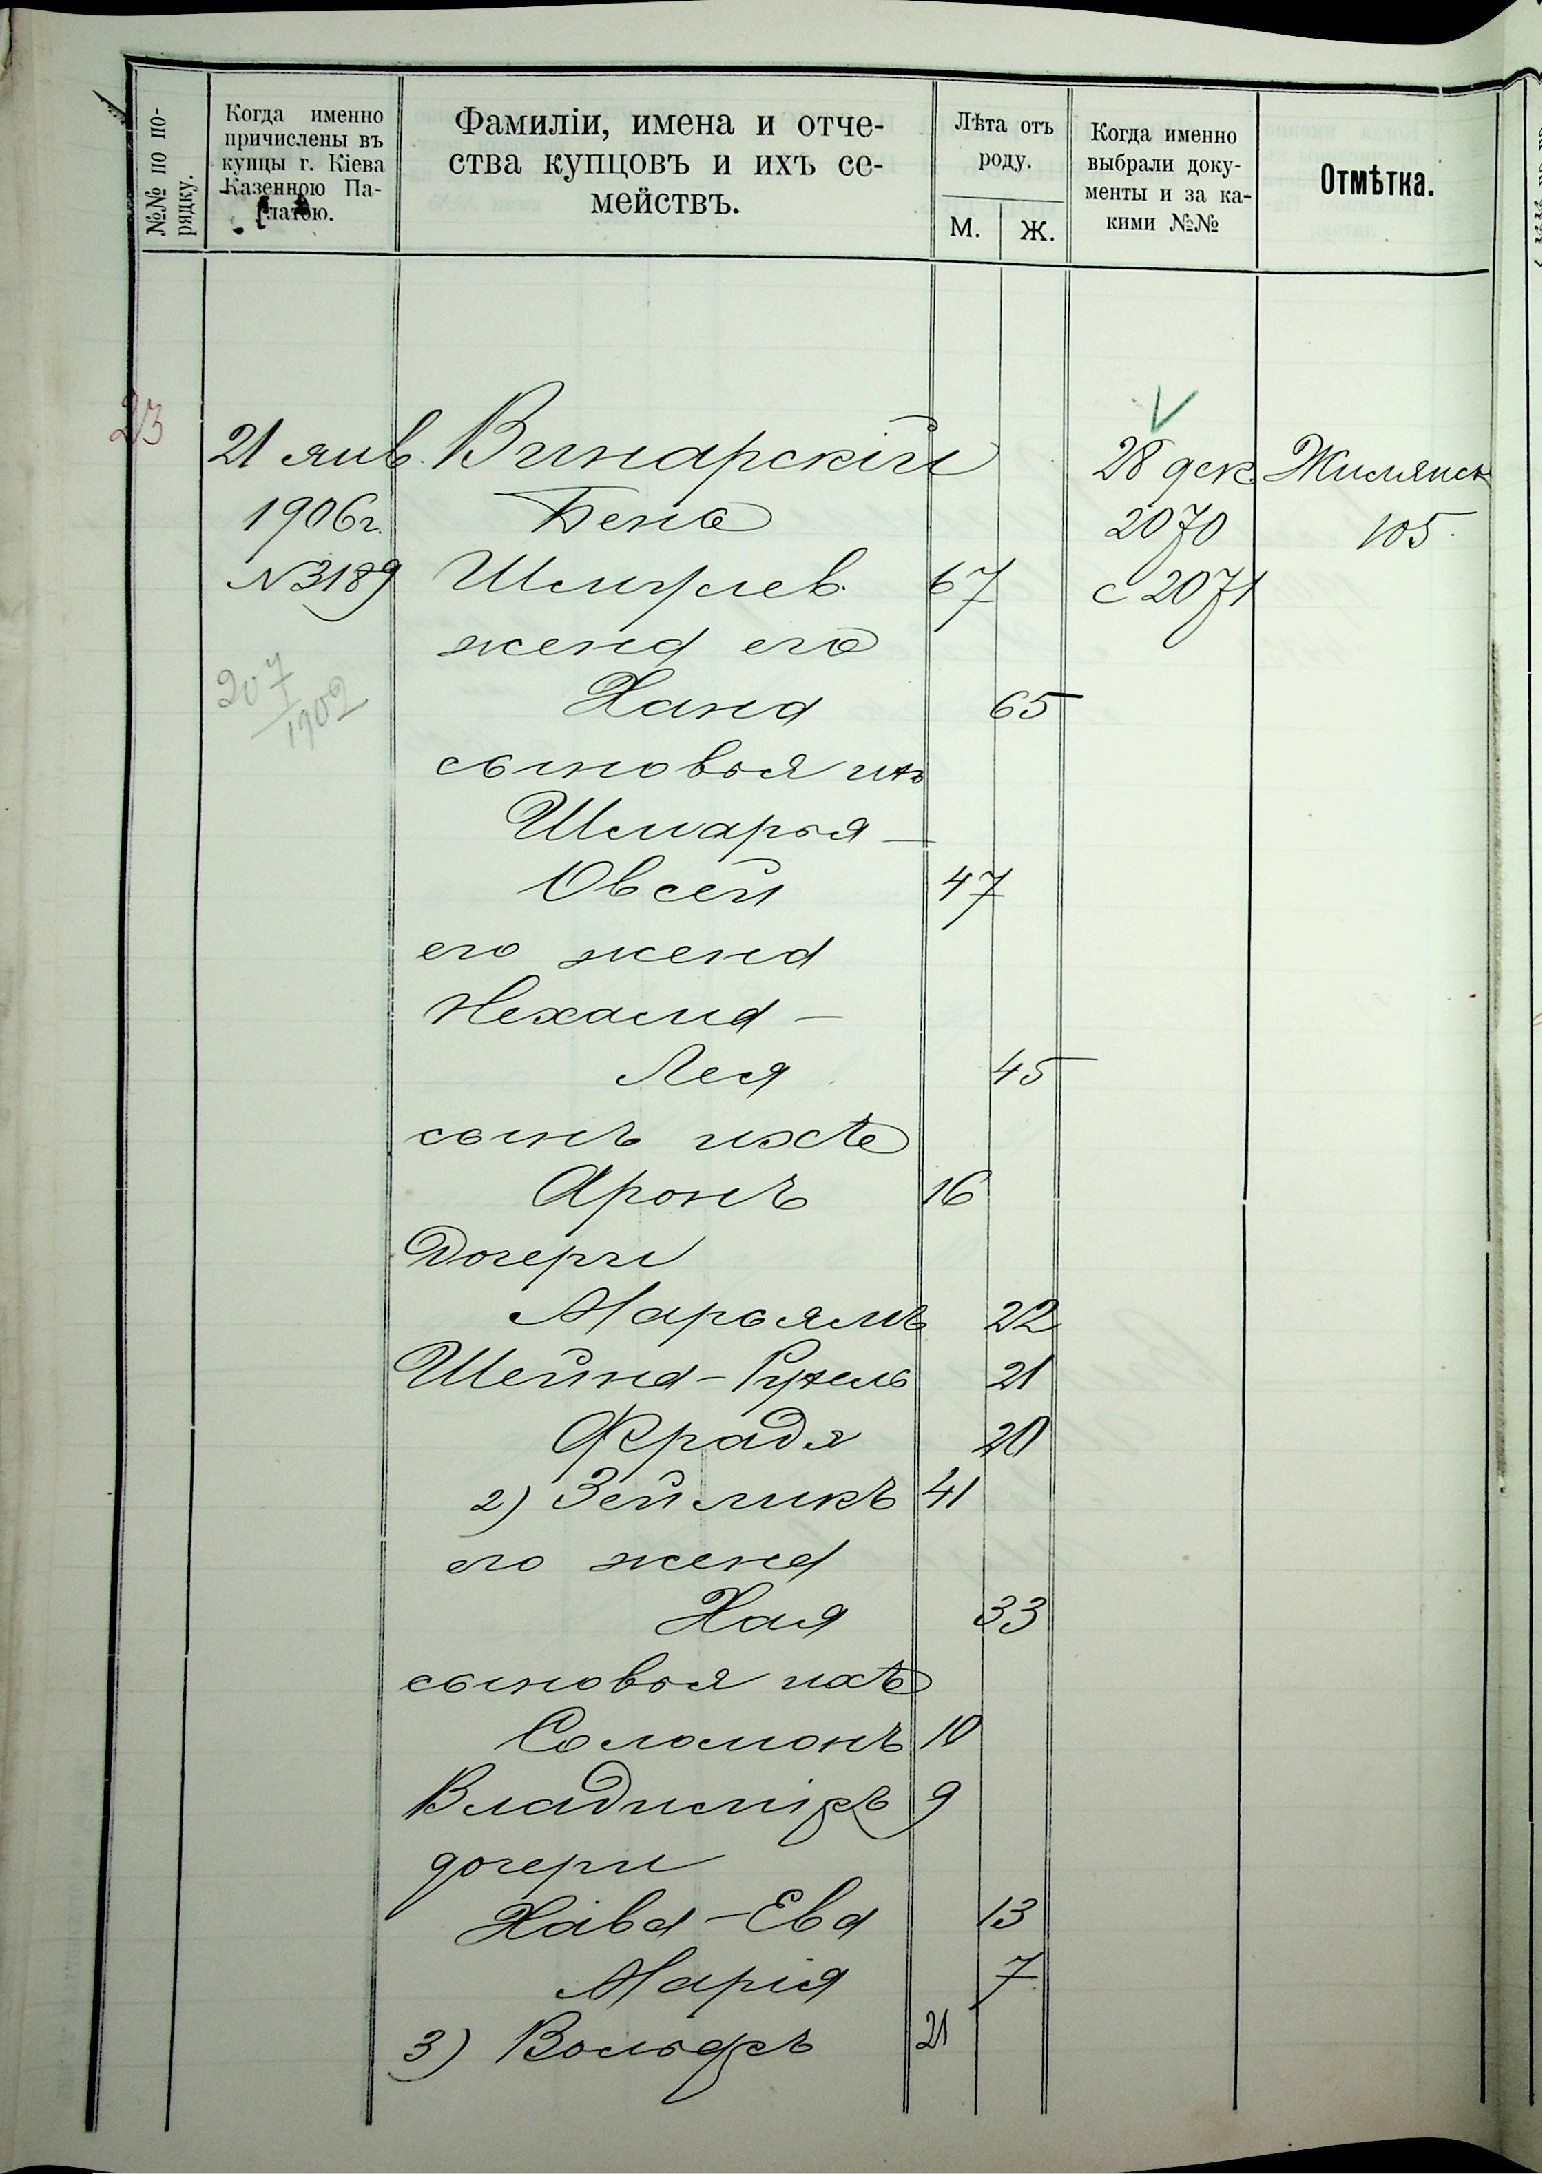 №№ по по-
рядку.
Когда именно
причислены въ
купцы г. Кіева
Казенною Па-
латою.
Фамиліи, имена и отче-
ства купцовъ и ихъ се-
мействъ.
Лѣта отъ
роду.
М.
Ж.
Когда именно
выбрали доку-
менты и за ка-
кими №№
Отмѣтка.
23
21 янв. Винарскій 28 дек. Жилянск
1906г. Бена 2070 105.
№3189 Шмулев. 67 с 2071
жена его
207/1902
Хана 65
сыновья ихъ
Шмарья —
Овсей 47
его жена
Нехама —
Лея 45
сынъ ихъ
Аронъ 16
Дочери
Марьямъ 22
Шейна - Рухель 21
Фрадя 20
2) Зейликъ 41
его жена
Хая 33
сыновья ихъ
Соломонъ 10
Владиміръ 9
дочери
Хава - Ева 13
Марія 7
3) Вольфъ 21